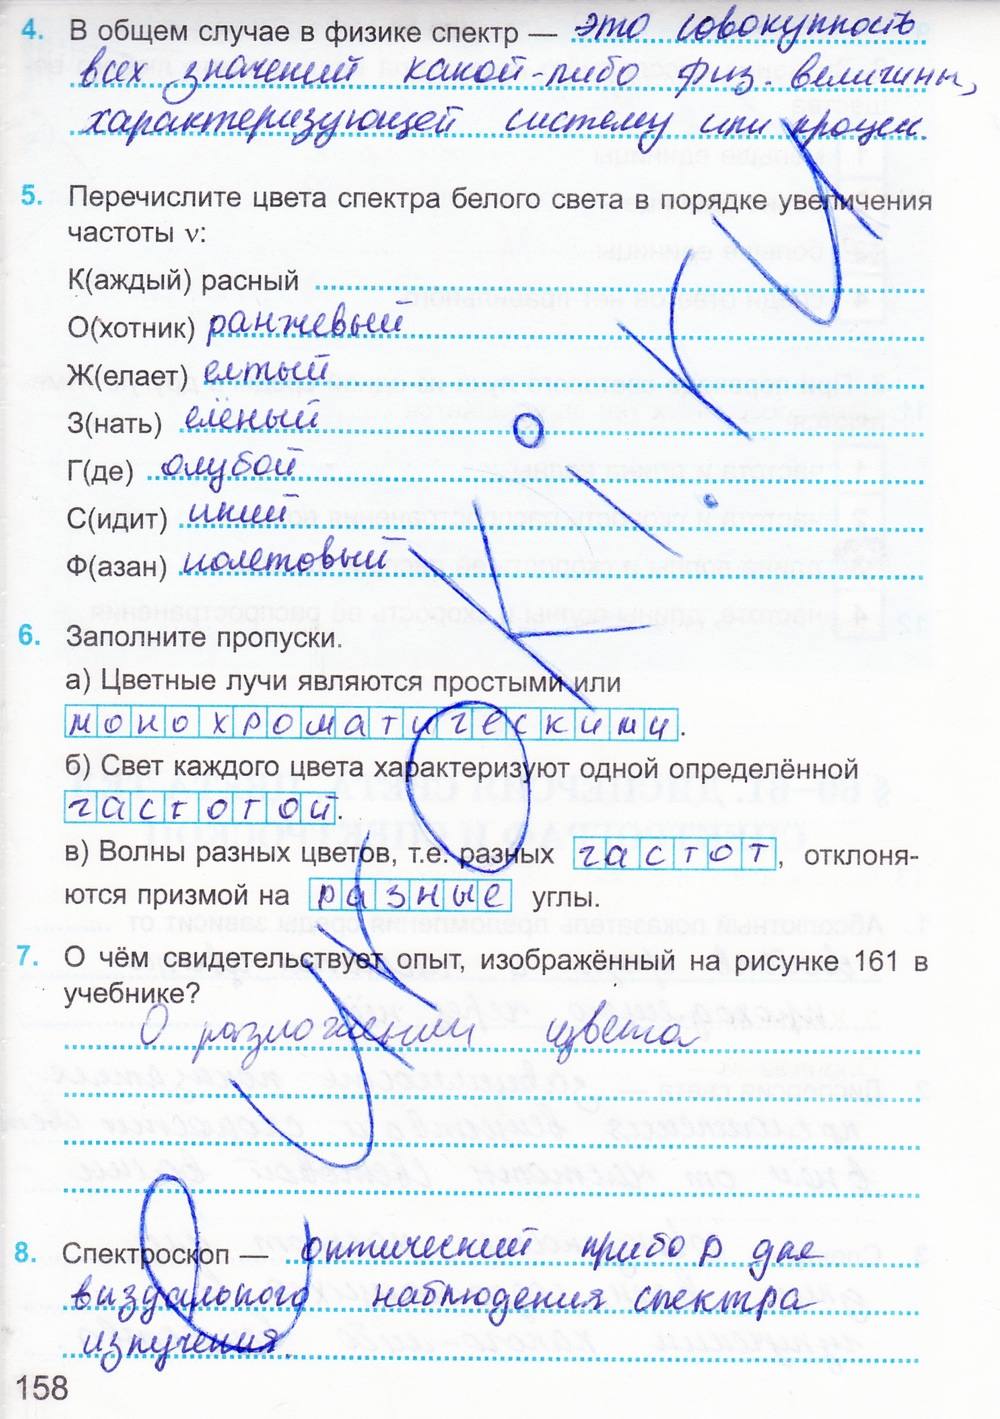 4. В общем случае в физике спектр — это совокупность
всех значений какой-либо физ. величины,
характеризующей систему или процесс.
5. Перечислите цвета спектра белого света в порядке увеличения
частоты ν:
К(аждый) расный
О(хотник) ранжевый
Ж(елает) елтый
З(нать) елёный
Г(де) олубой
С(идит) иний
Ф(азан) иолетовый
6. Заполните пропуски.
а) Цветные лучи являются простыми или
монохроматическими.
б) Свет каждого цвета характеризуют одной определённой
частотой.
в) Волны разных цветов, т.е. разных частот, отклоня-
ются призмой на разные углы.
7. О чём свидетельствует опыт, изображённый на рисунке 161 в
учебнике?
О разложении цвета
8. Спектроскоп — оптический прибор для
визуального наблюдения спектра
излучения.
158